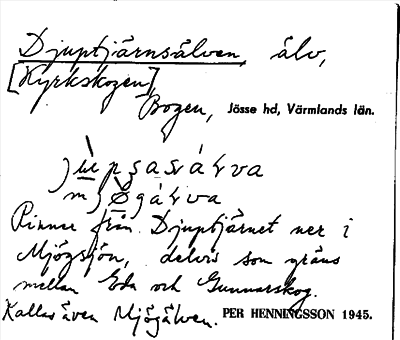 Djuptjärnsälven, älv,
[Kyrkskogen]
Bogen, Jösse hd, Värmlands län.
Rinner från Djuptjärnet ner i
Mjögsjön, delvis som gräns
mellan Eda och Gunnarskog.
Kallas även Mjögälven. PER HENNINGSSON 1945.